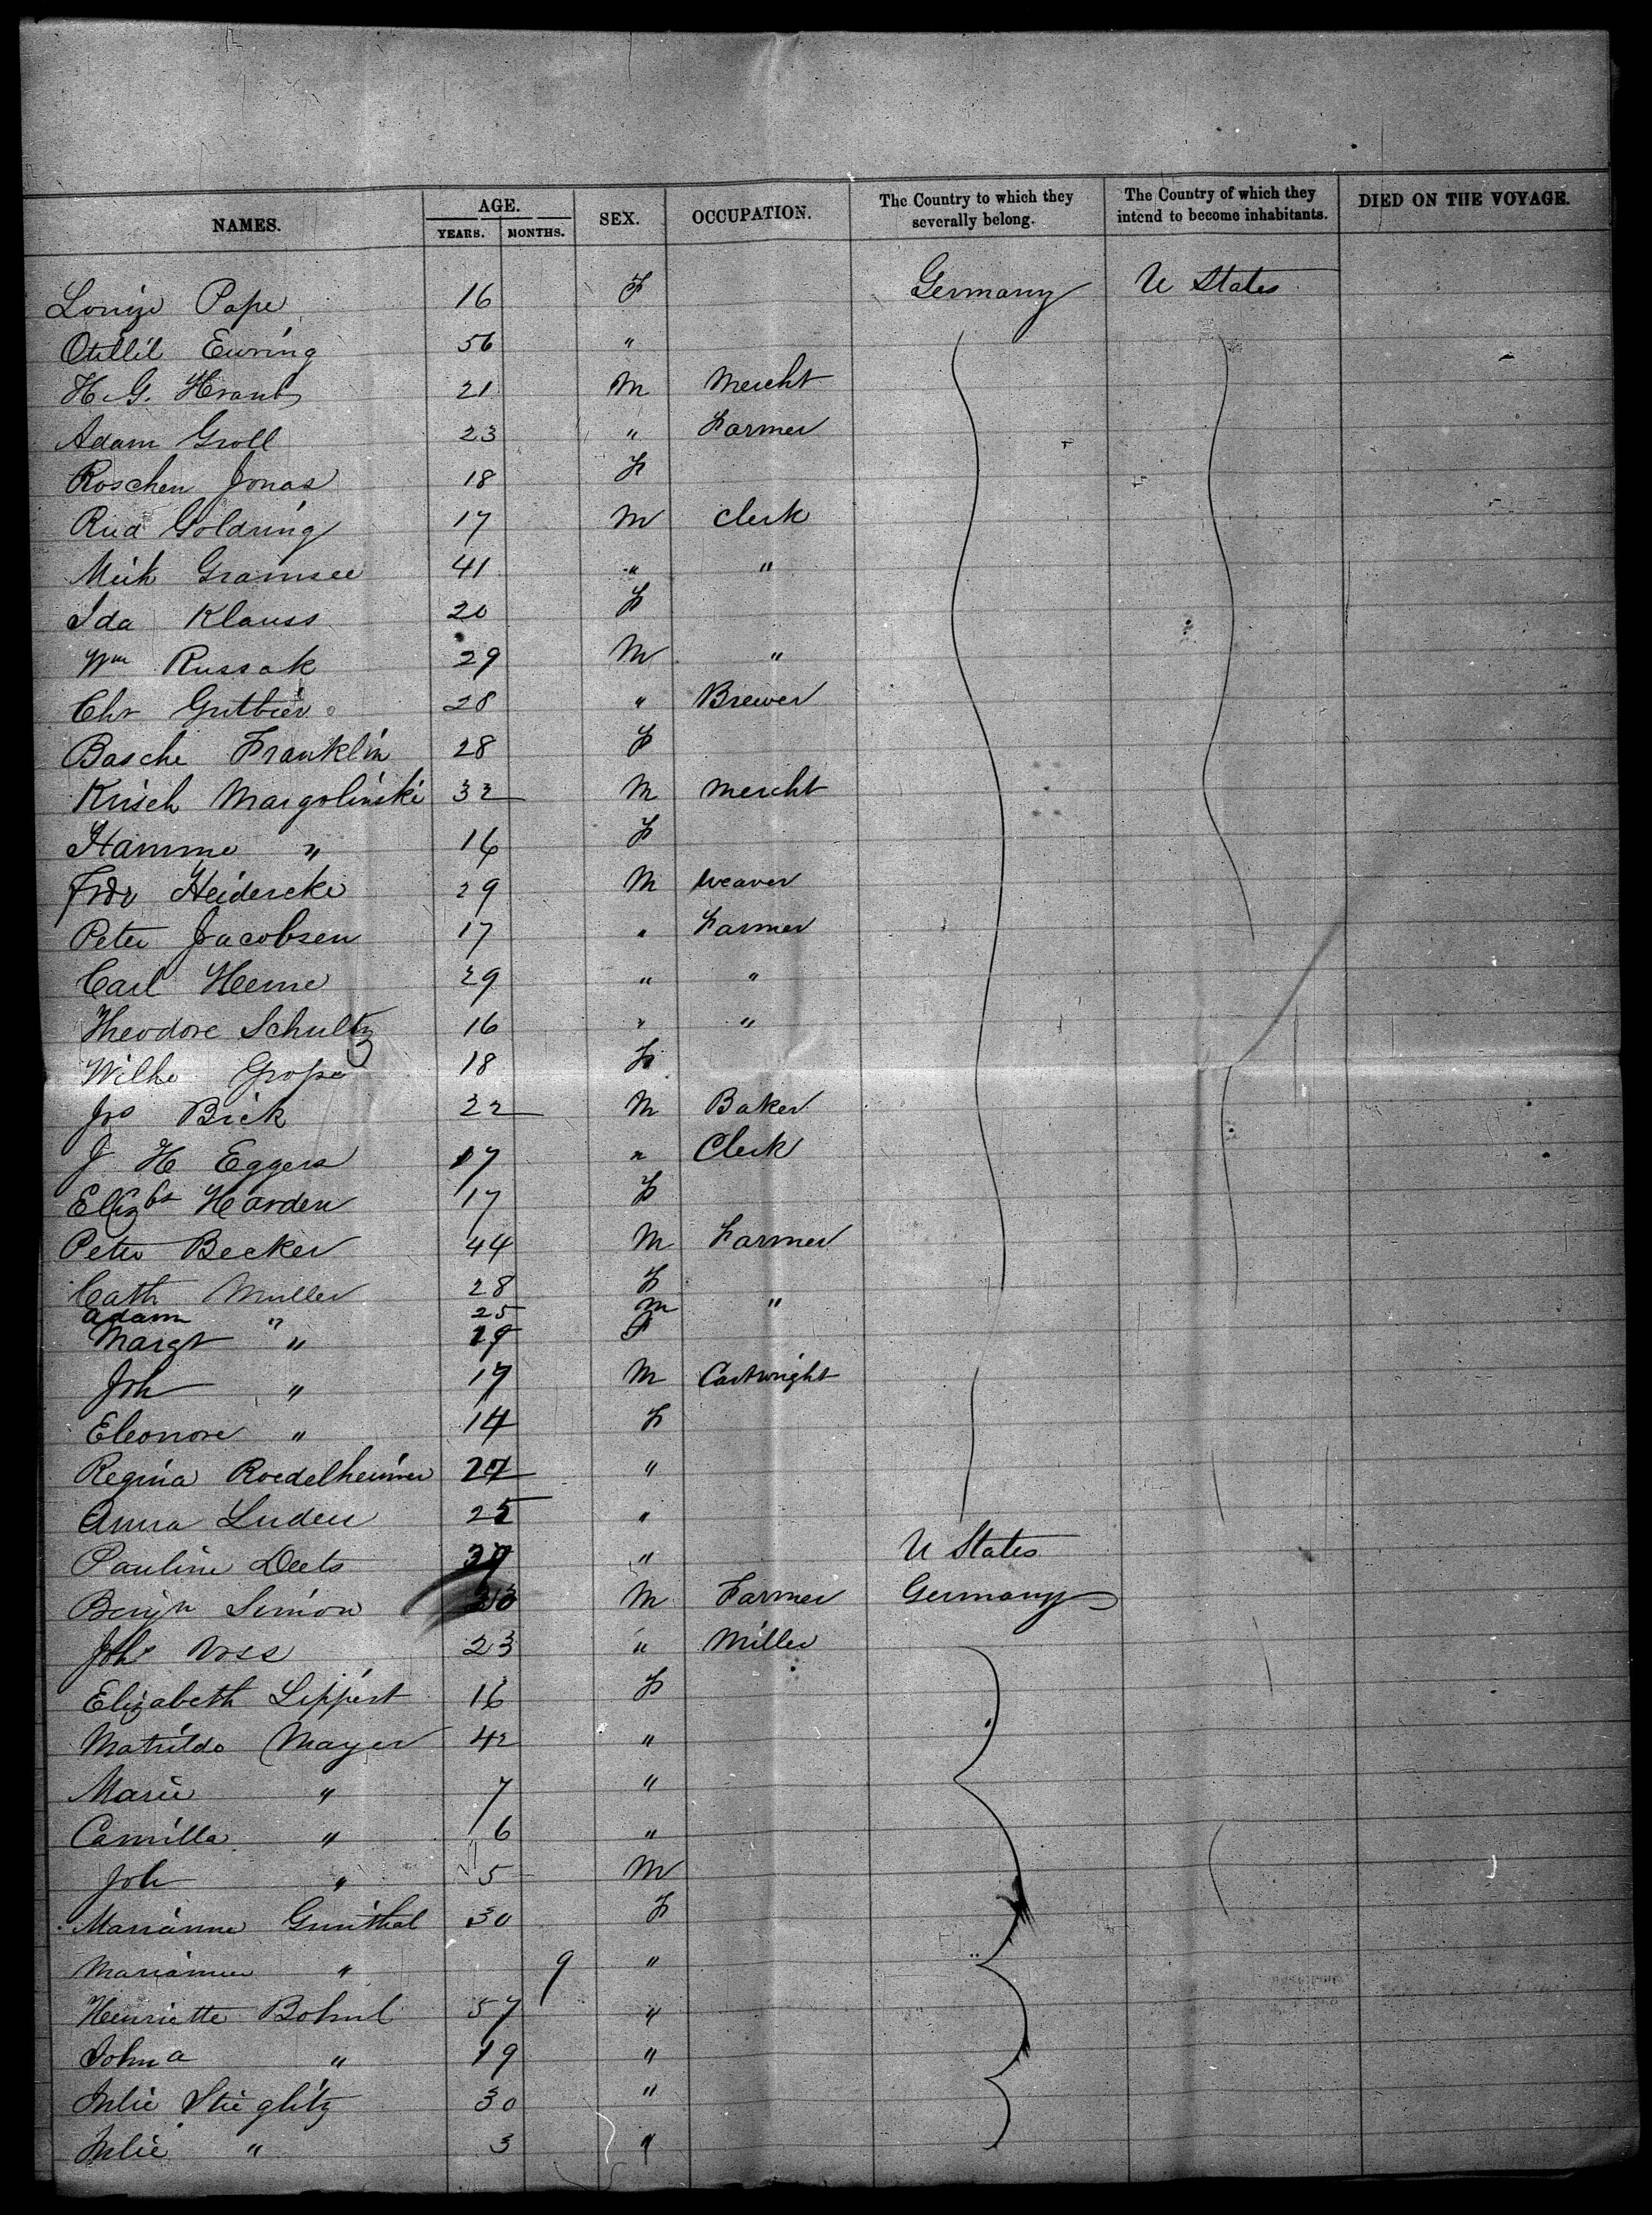 NAMES. AGE. SEX. OCCUPATION. The Country to which they severally belong. The Country of which they intend to become inhabitants. DIED ON THE VOYAGE.
YEARS. MONTHS.
Louise Pape 16 F Germany U States
Ottilie Ewring 56 "
H. G. 21 M Mercht
Adam Groll 23 " Farmer
Roschen Jonas 18 F
Rud Goldring 17 M Clerk
Gramsee 41 " "
Ida Klauss 20 F
Wm Russak 29 M "
Chr Gutbier 28 " Brewer
Basche Franklin 28 F
Krisch Margolinski 32 M Mercht
Hamme " 16 F
Heidercke 29 M Weaver
Peter Jacobsen 17 " Farmer
Carl Heine 29 " "
Theodore Schultz 16 " "
Wilhe 18 F
Jos Bick 22 M Baker
J H Eggers 17 " Clerk
Elizbt Harden 17 F
Peter Becker 44 M Farmer
Cath Muller 28 F
Adam " 25 M "
Margt " 19 F
Joh " 17 M Cartwright
Eleonore " 14 F
Regina Roedelheimer 27 "
Anna Luden 25 "
Pauline Deets " U States
Benjn Simon M Farmer Germany
Johs Voss 23 " Miller
Elizabeth Lippert 16 F
Matilde Mayer 42 "
Marie " 7 "
Camilla " 6 "
Joh " 5 M
Marianne Gunthal 30 F
Marianne " 9 "
Henriette Bohnl 57 "
Johna " 19 "
Julie Stieglitz 30 "
Julie " 3 "